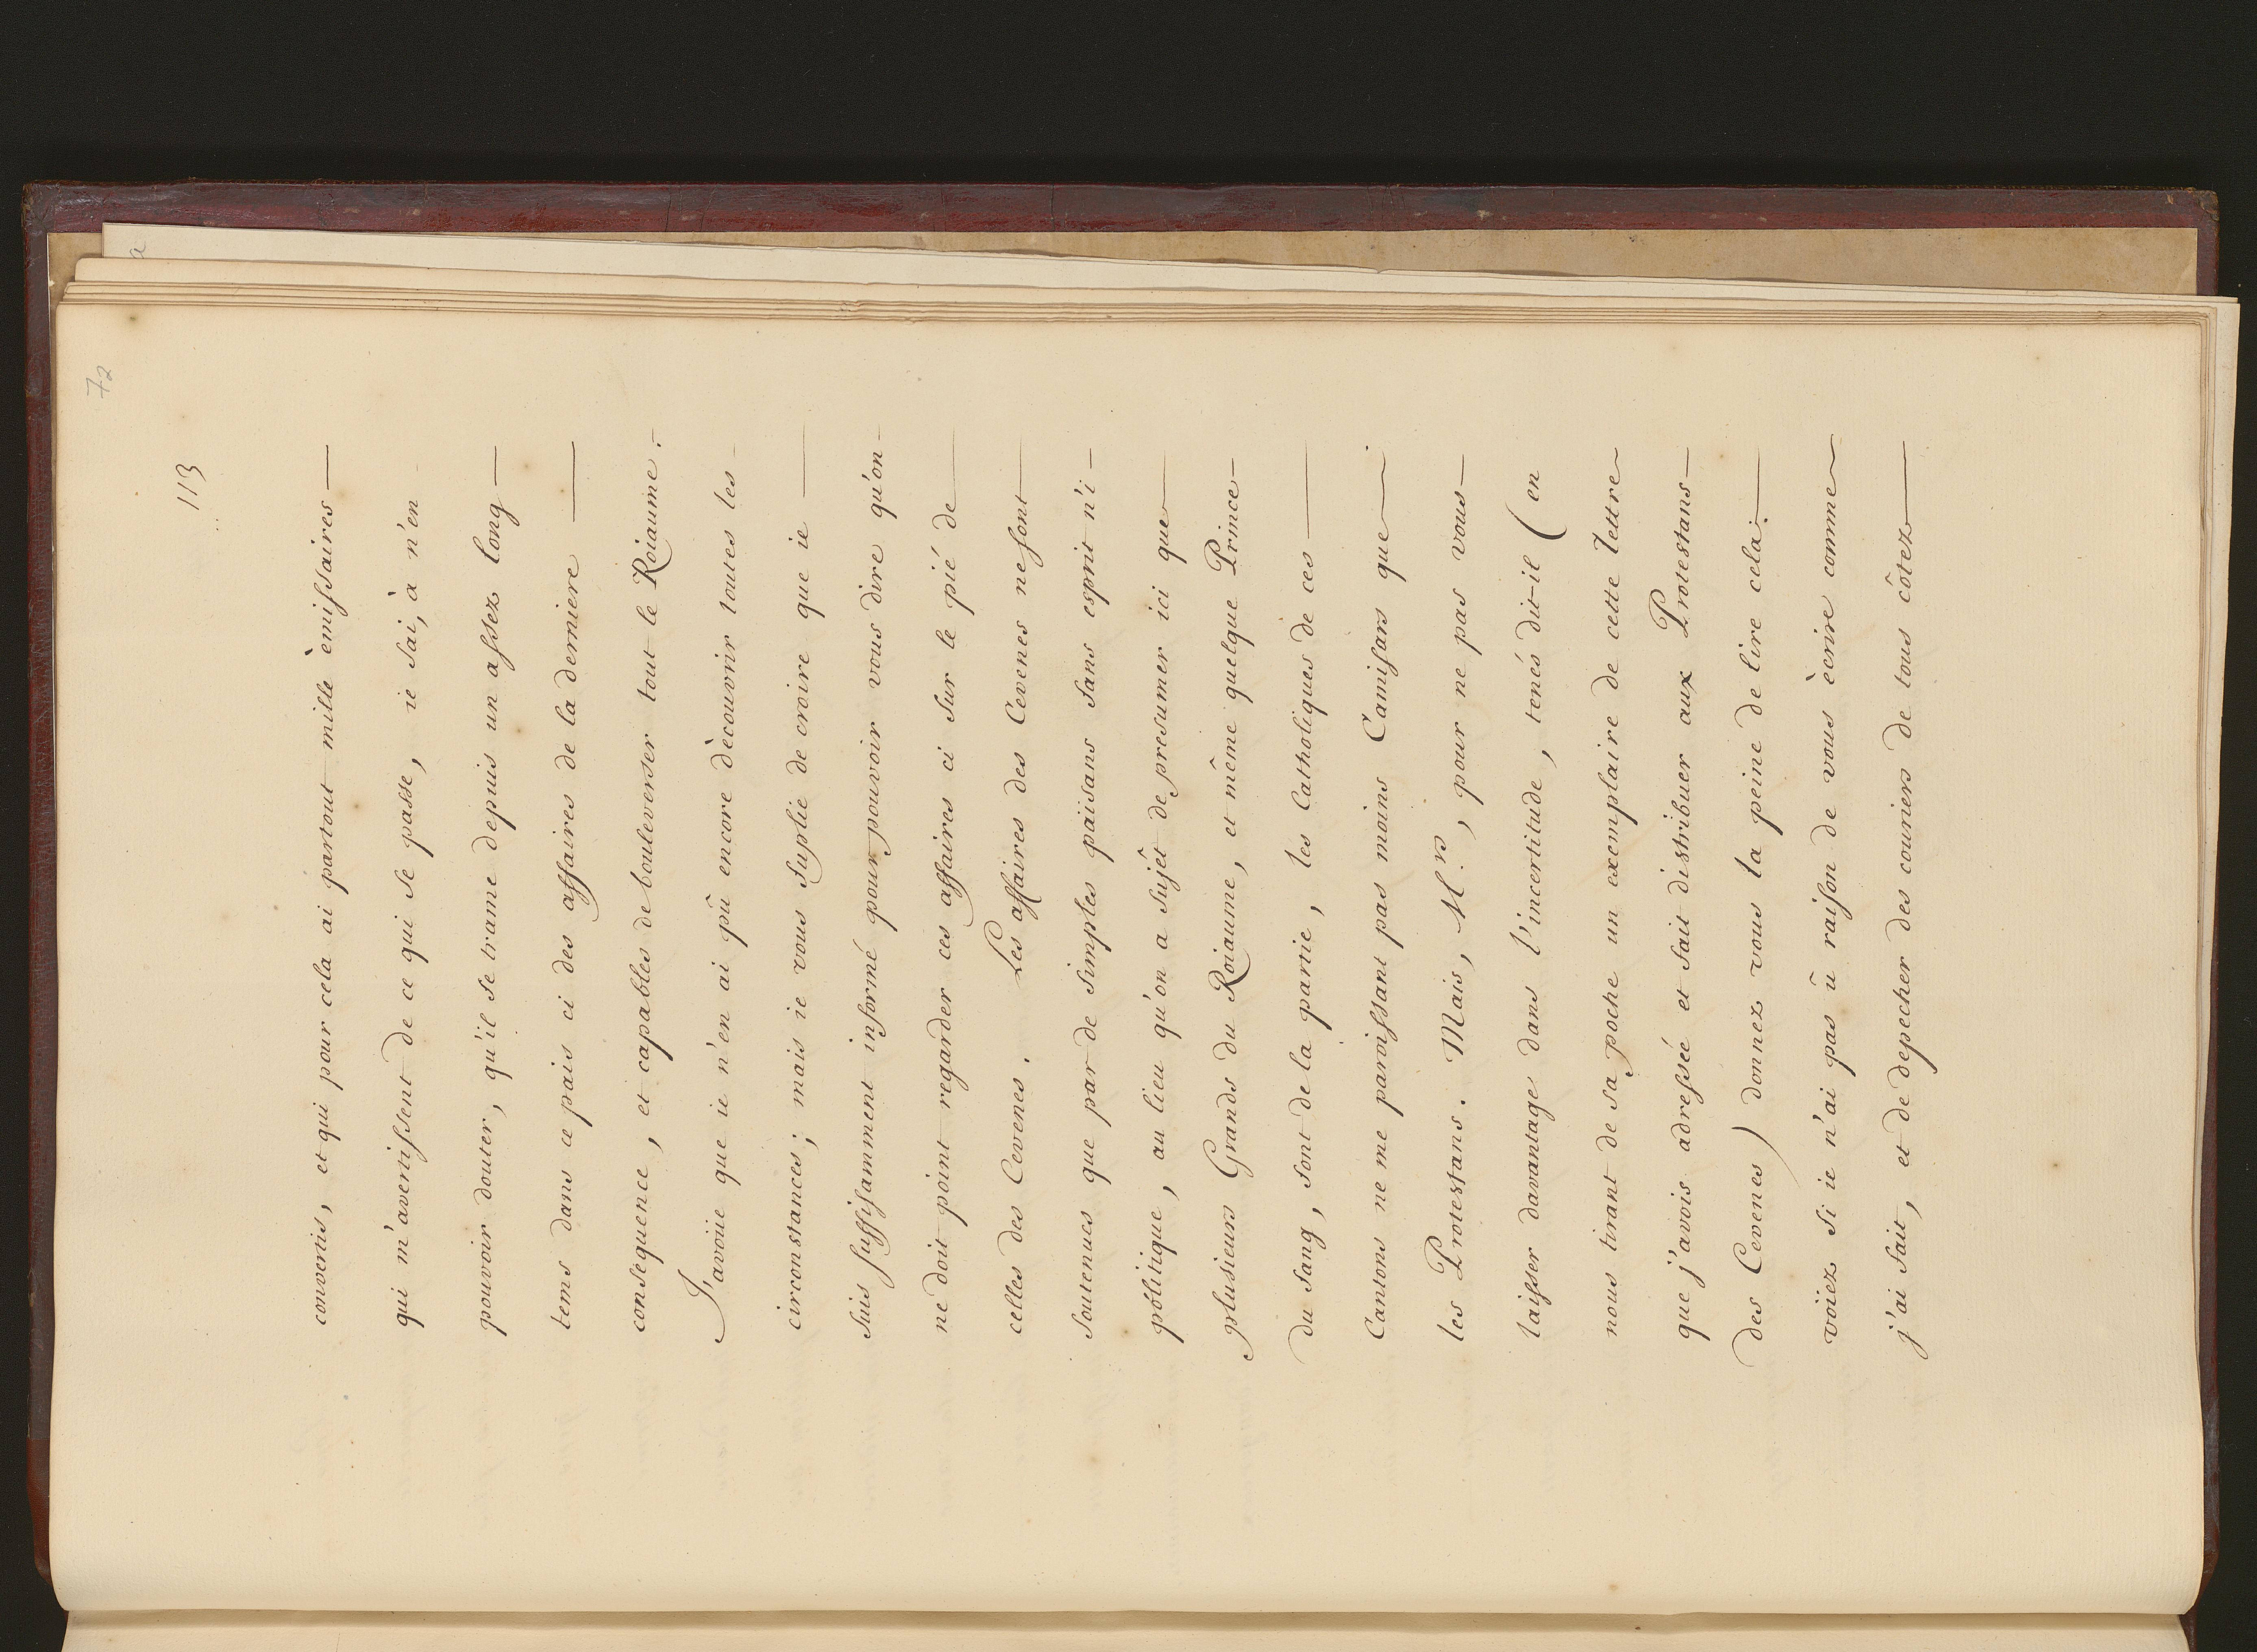 72
113
convertis, et qui pour cela ai partout mille èmissaires —
qui m'avertissent de ce qui se passe, ie sai, à n'en
pouvoir douter, qu'il se trame depuis un assez long —
tems dans ce païs ci des affaires de la derniere —
consequence, et capables de bouleverser tout le Roiaume. -
J'avoüe que ie n'en ai pû encore dècouvrir toutes les -
circonstances; mais ie vous suplie de croire que ie —
suis suffisamment informé pour pouvoir vous dire qu'on -
ne doit point regarder ces affaires ci sur le pié de —
celles des Cevenes. Les affaires des Cevenes ne sont —
soutenues que par de simples païsans sans esprit n'i -
pôlitique, au lieu qu'on a sujêt de presumer ici que —
plusieurs Grands du Roiaume, et même quelque Prince -
du sang, sont de la partie, les Catholiques de ces —
Cantons ne me paroissant pas moins Camisars que —
les Protestans. Mais, M.rs, pour ne pas vous —
laisser davantage dans l'incertitude, tenés dit-il (en
nous tirant de sa poche un exemplaire de cette lettre
que j'avois adressée et fait distribuer aux Protestans —
des Cevenes) donnez vous la peine de lire cela. —
voïez si ie n'ai pas û raison de vous ècrire comme
j'ai fait, et de depecher des couriers de tous côtez —